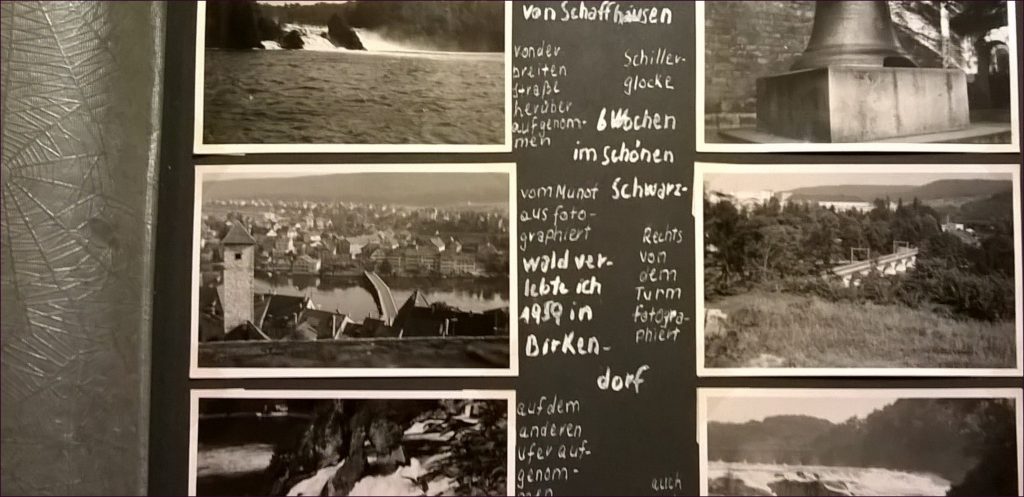 von Schaffhausen
von der
breiten
Straße
herüber
aufgenom-
men
Schiller-
glocke
6 Wochen
im schönen
Schwarz-
vom Munot
aus foto-
graphiert
wald ver-
lebte ich
1959 in
Birken-
dorf
Rechts
von
dem
Turm
fotogra-
phiert
auf dem
anderen
ufer auf-
genom-
men
auch